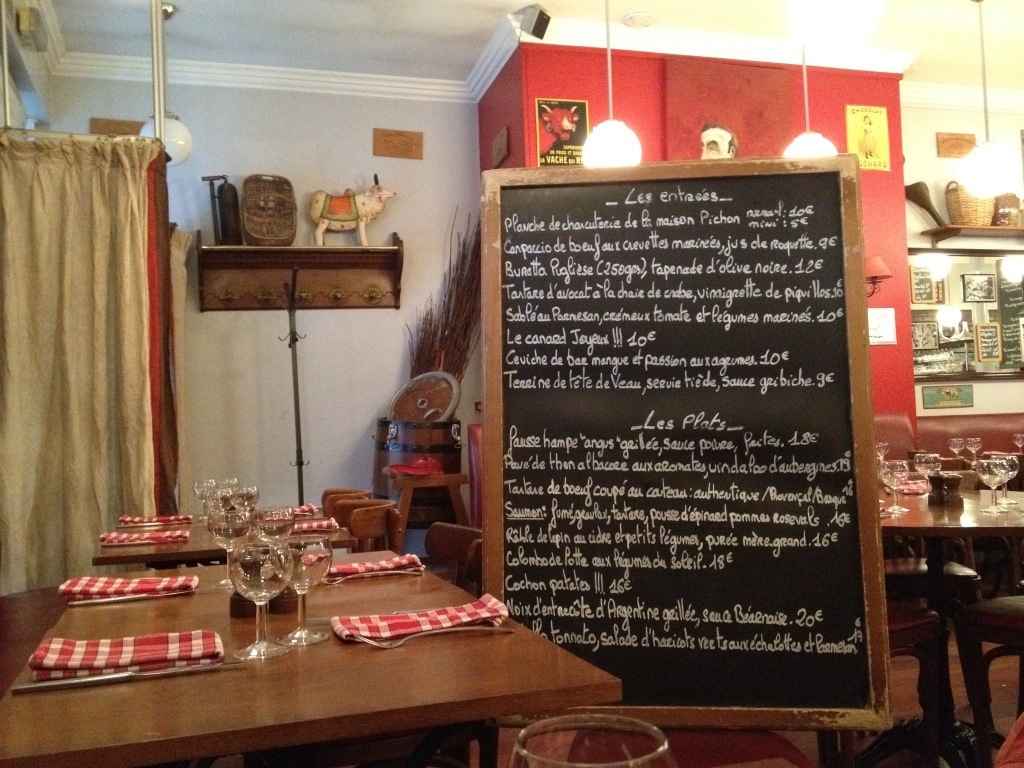 _ Les entrées _
Planche de charcuterie de la maison Pichon normal: 10€
mini: 5€
Carpaccio de boeuf aux crevettes marinées, jus de roquette. 9€
Burratta Pugliese (250grs), tapenade d'olive noire. 12€
Tartare d'avocat à la chair de crabe, vinaigrette de piquillos. 10
Sablé au Parmesan, crémeux tomate et légumes marinés. 10€
Le canard Joyeux !!! 10€
Ceviche de bar mangue et passion aux agrumes. 10€
Terrine de tête de Veau, servie tiède, sauce gribiche. 9€
_ Les Plats _
Fausse hampe "angus" grillée, sauce poivre, frites. 18€
Pavé de thon albacore aux aromates, vindaloo d'aubergines.
Tartare de boeuf coupé au couteau: authentique / Provençal / Basque
Saumon: fumé, gravlax, tartare, pousse d'épinard pommes rosevals 16€
Râble de lapin au cidre et petits légumes, purée mère.grand. 16€
Colombo de lotte aux légumes du Soleil. 18€
Cochon patates !!! 16€
Noix d'entrecôte d'Argentine grillée, sauce Béarnaise. 20€
tonnato, salade d'haricots verts aux échalottes et Parmesan
LA VACHE QUI
CHOCOLAT